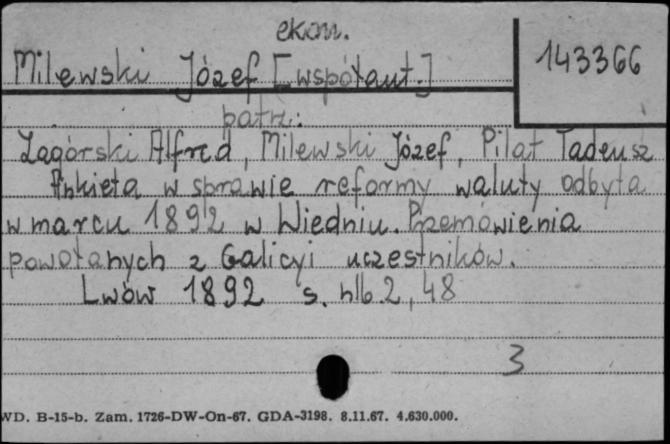 ekon.
Milewski Józef [współaut.]
143366
patrz:
Zagórski Alfred, Milewski Józef, Pilat Tadeusz
Ankieta w sprawie reformy waluty odbyta
w marcu 1892 w Wiedniu. Przemówienia
powołanych z Galicyi uczestników.
Lwów 1892 s. nlb. 2, 48
3
WD. B-15-b. Zam. 1726-DW-On-67. GDA-3198. 8.11.67. 4.630.000.